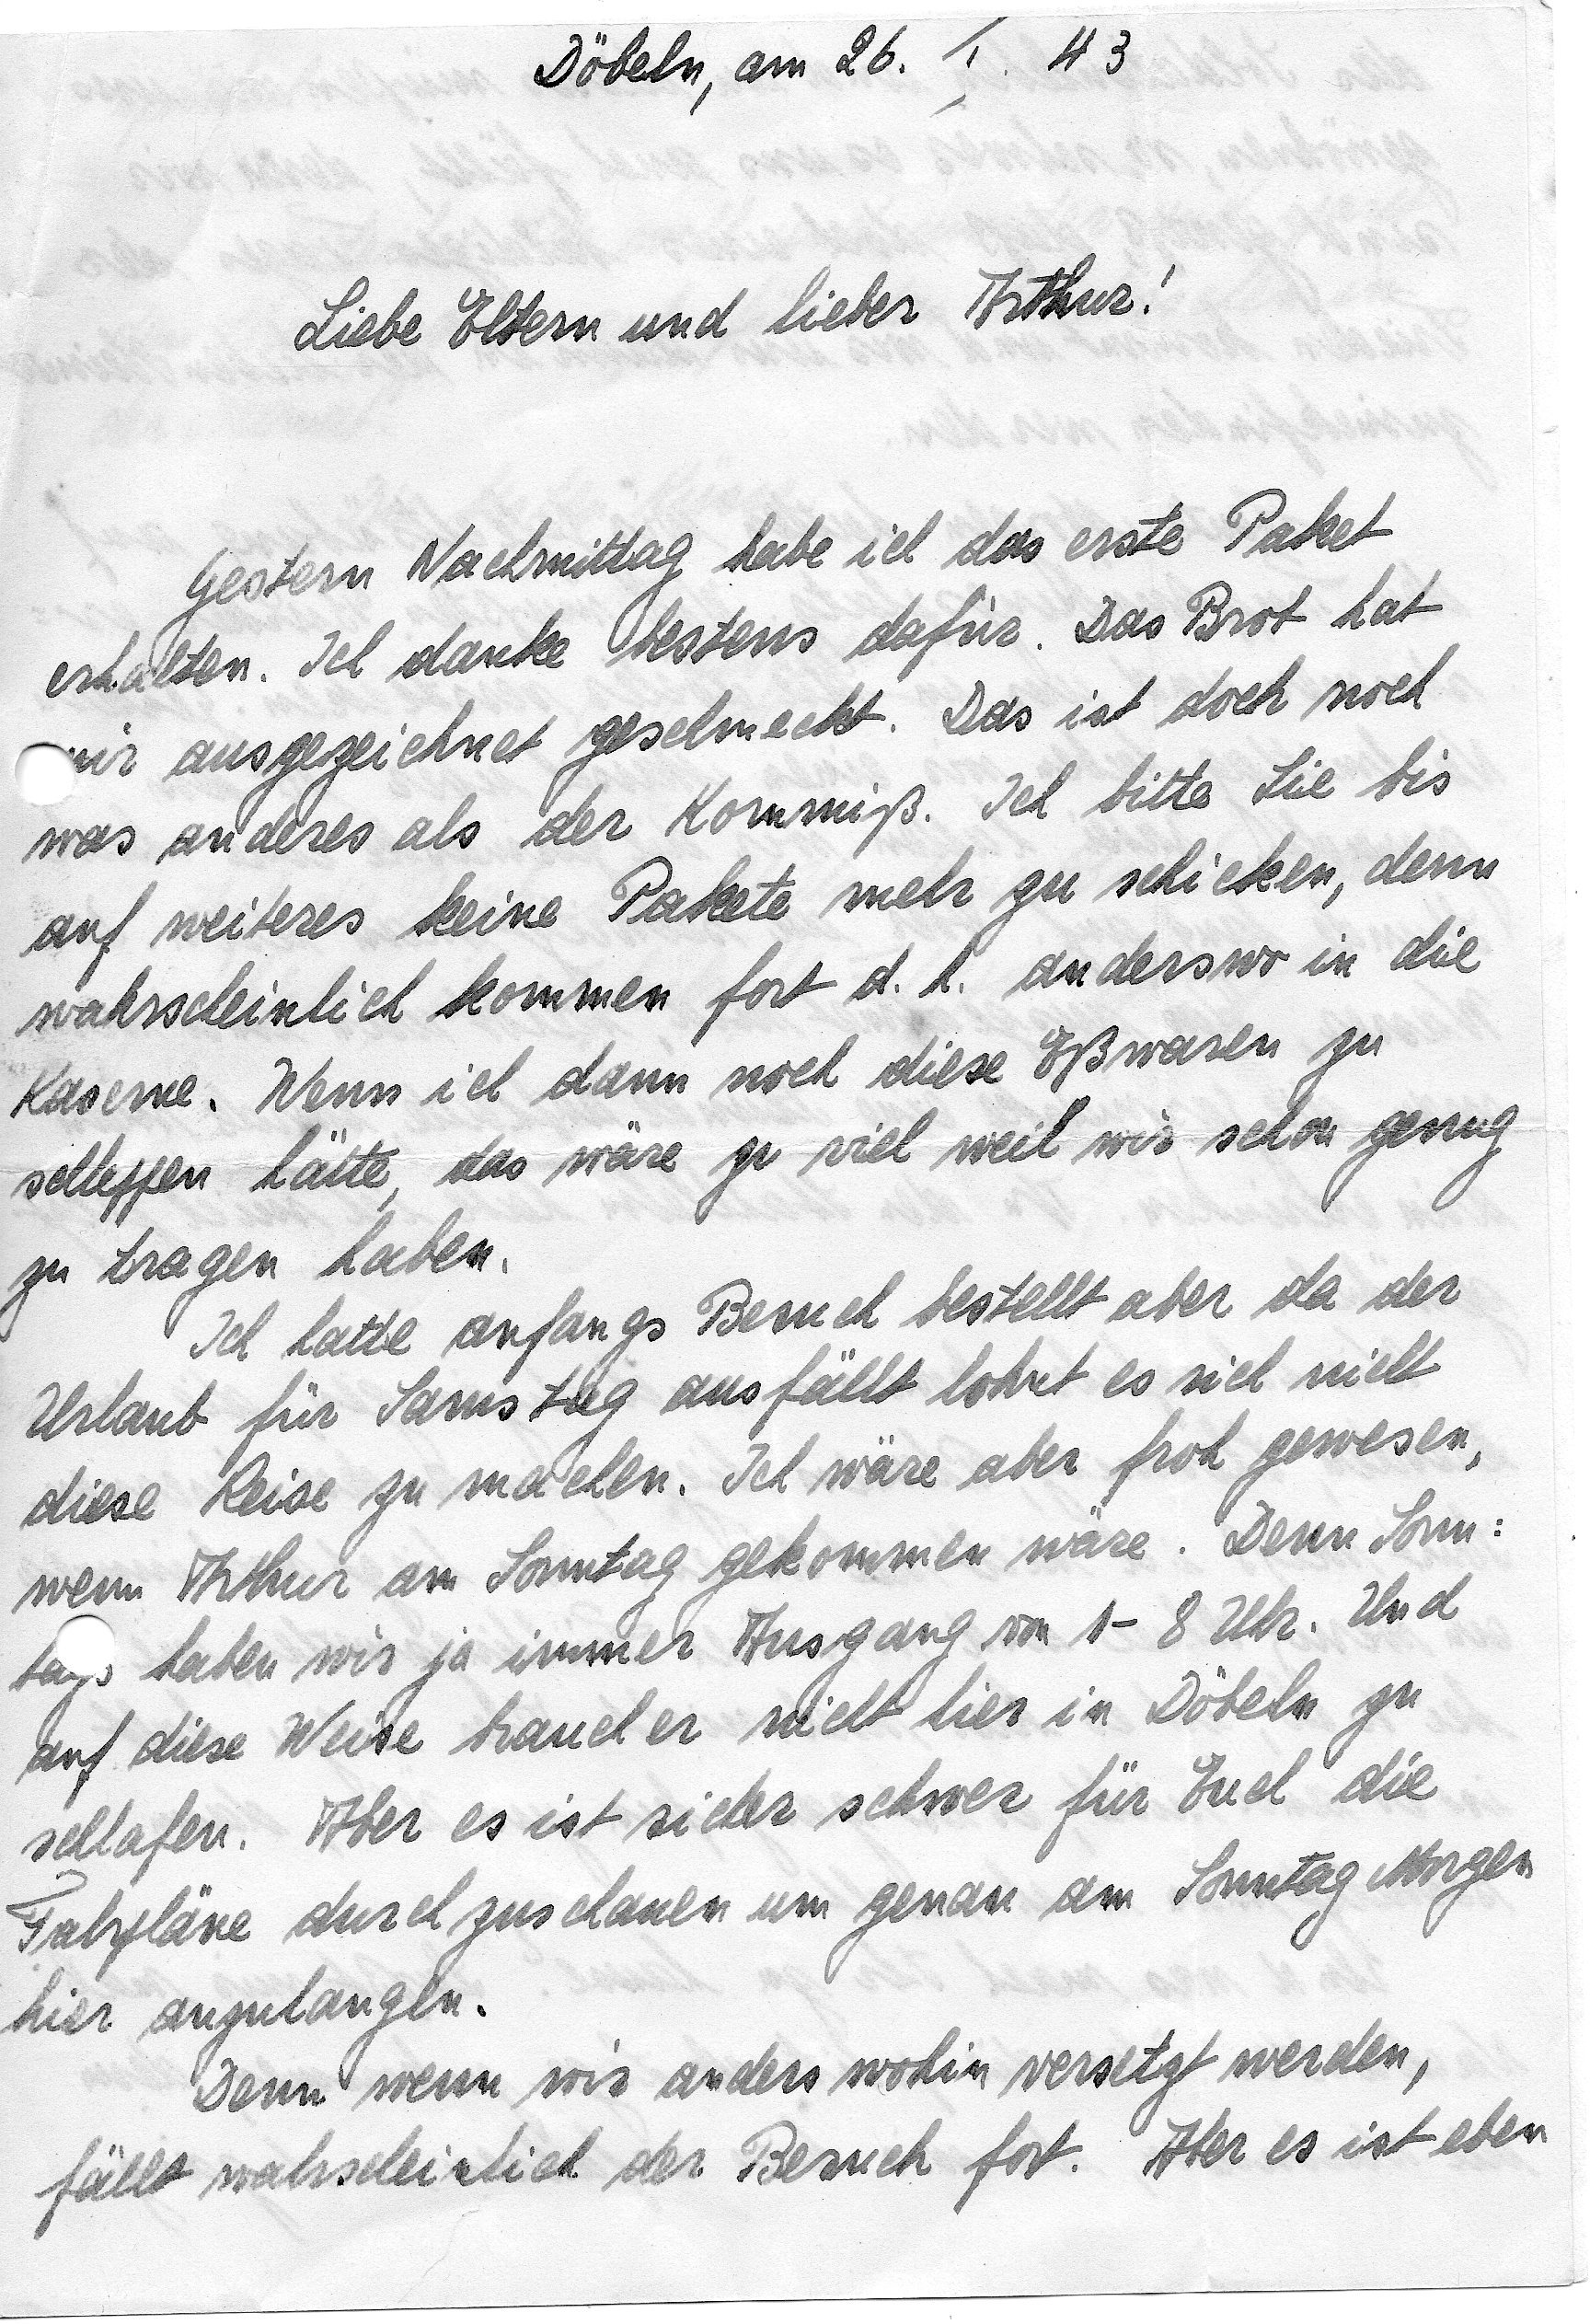 Döbeln, am 26. I. 43
Liebe Eltern und lieber Arthur!
Gestern Nachmittag habe ich das erste Paket
erhalten. Ich danke bestens dafür. Das Brot hat
mir ausgezeichnet geschmeckt. Das ist doch noch
was anderes als der Kommiß. Ich bitte Sie bis
auf weiteres keine Pakete mehr zu schicken, denn
wahrscheinlich kommen fort d. h. anderswo in die
Kaserne. Wenn ich dann noch diese Eßwaren zu
schleppen hätte, das wäre zu viel weil wir schon genug
zu tragen haben.
Ich hatte anfangs Besuch bestellt aber da der
Urlaub für Samstag ausfällt lohnt es sich nicht
diese Reise zu machen. Ich wäre aber froh gewesen,
wenn Arthur am Sonntag gekommen wäre. Denn Sonn:
tags haben wir ja immer Ausgang von 1- 8 Uhr. Und
auf diese Weise brauch er nicht hier in Döbeln zu
schlafen. Aber es ist sicher schwer für Euch die
Fahrpläne durchzuschauen um genau am Sonntag Morgen
hier anzulangen.
Denn wenn wir anders wohin versetzt werden,
fällt wahrscheinlich der Besuch fort. Aber es ist eben